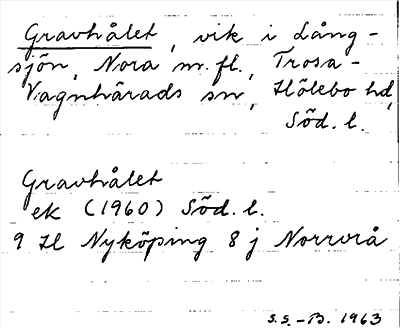 Gravhålet, vik i Lång-
sjön, Nora m.fl., Trosa-
Vagnhärads sn, Hölebo hd,
Söd. l.
Gravhålet
ek (1960) Söd. l.
9 H Nyköping 8 j Norrvrå
S.S.-B. 1963